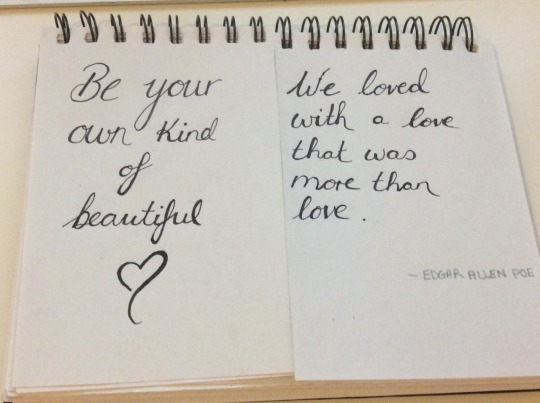 Be your
own kind
of
beautiful
We loved
with a love
that was
more than
love.
- EDGAR ALLEN POE